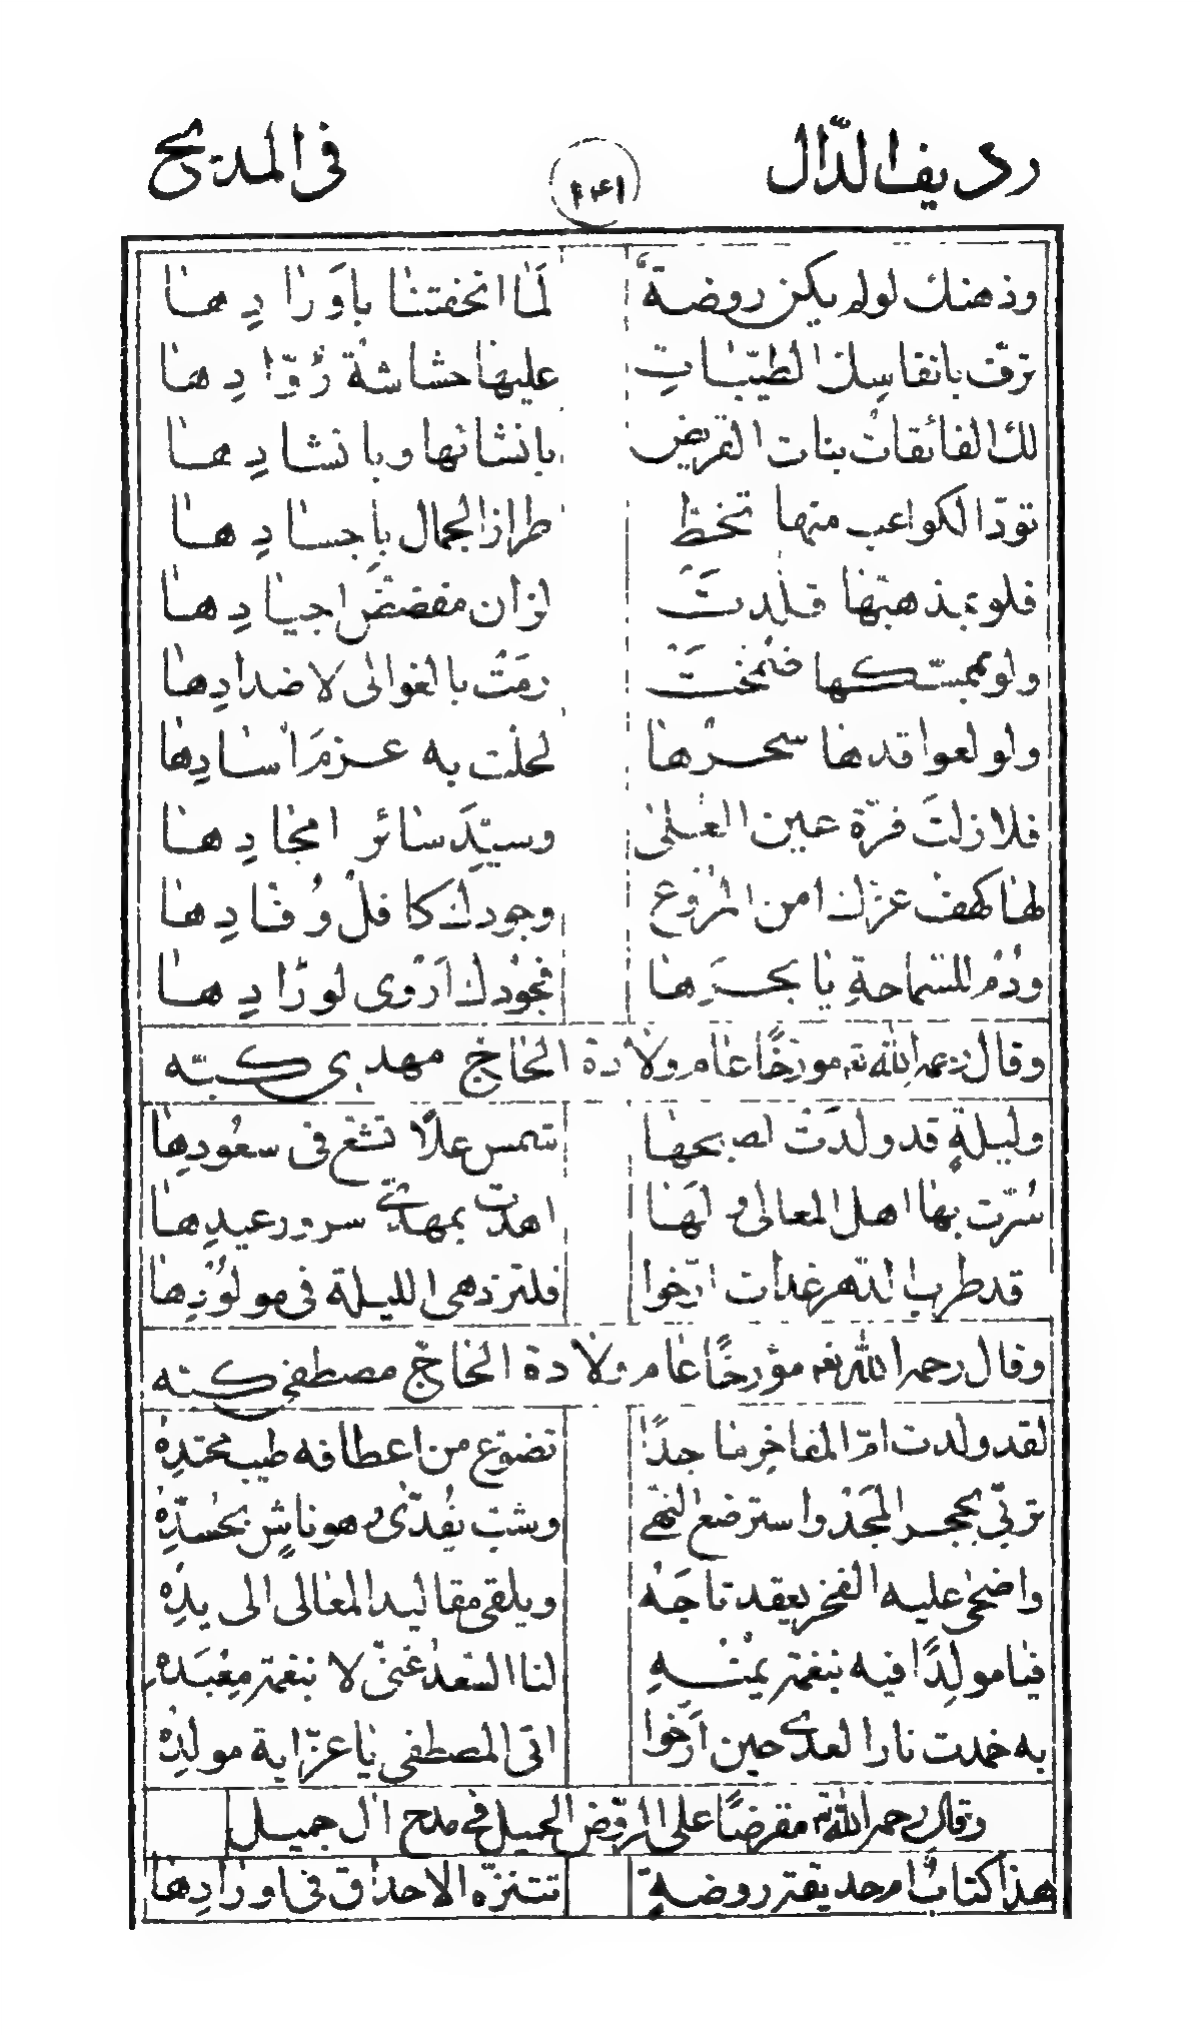 رديف الدّال ١٤١ فى المديح
وذهنك لو لم يكن روضة لَما اتحفتنا باَوراِدِها
ترقّ بانفاسِك الطيّباتِ عليها حشاشة رُوّادِها
لك الفائقات بنات القريض بانشائها وبانشادِها
تودّ الكواعب منها تخطّ طراز الجمال باِجسادِها
فلو بمذهبتها قلدتَ لزان مفضّضُ اجيادِها
ولو بممسّكها ضُمّخَتْ رمَتْ بالغوالى لاضدادِها
ولو لعوا قدها سحرُها لحلّت به عزمَ اسادِها
فلا زلتَ قرّة عين العُلىٰ وسيّدَ سائر امجادِها
لها كهفُ عزّك امن المَروع وجودك كافلُ وُفّادِها
ودُمْ للسّماحةِ يا بحرَها فجُودك اَرْوى لورّادِها
وقال رحمه الله تع مورّخًا عام ولادة الحاجّ مهدى كبّه
وليلةٍ قد ولدَتْ لصبحها شمس علاً تشعّ فى سعُودِها
سُرّت بها اهل المعالى ولها اهدت بمهدىّ سرور عيدِها
قد طرب الدّهر غداة ارّخوا فلتزدهى الليلة فى مولُودِها
وقال رحمه الله تع مؤرخًا عام ولادة الحاجّ مصطفى كبّه
لقد ولدت امّ المفاخر ماجدًا تضوّع من اعطافه طيب محتدِهْ
تربّى بحجر المجد واسترضع النهى وشبّ يُفدّى وهو ناشٍ بحُسّدِهْ
واضحى عليه الفخر يعقد تاجَهُ ويلقى مقاليد المعالى الى يدِهْ
فيا مولدًا فيه بنغمة يمنهِ لنا السّعد غنّى لا بنغمة معْبَدِهْ
به خمدت نار العدى حين ارّخوا اتى المصطفى يا عزّ اية مولدِهْ
وقال رحمه الله تع مقرضًا على الروض الجميل فى مدح ال جميل
هذا كتابٌ ام حديقة روضةٍ تتنزّه الاحداق فى اورادِها